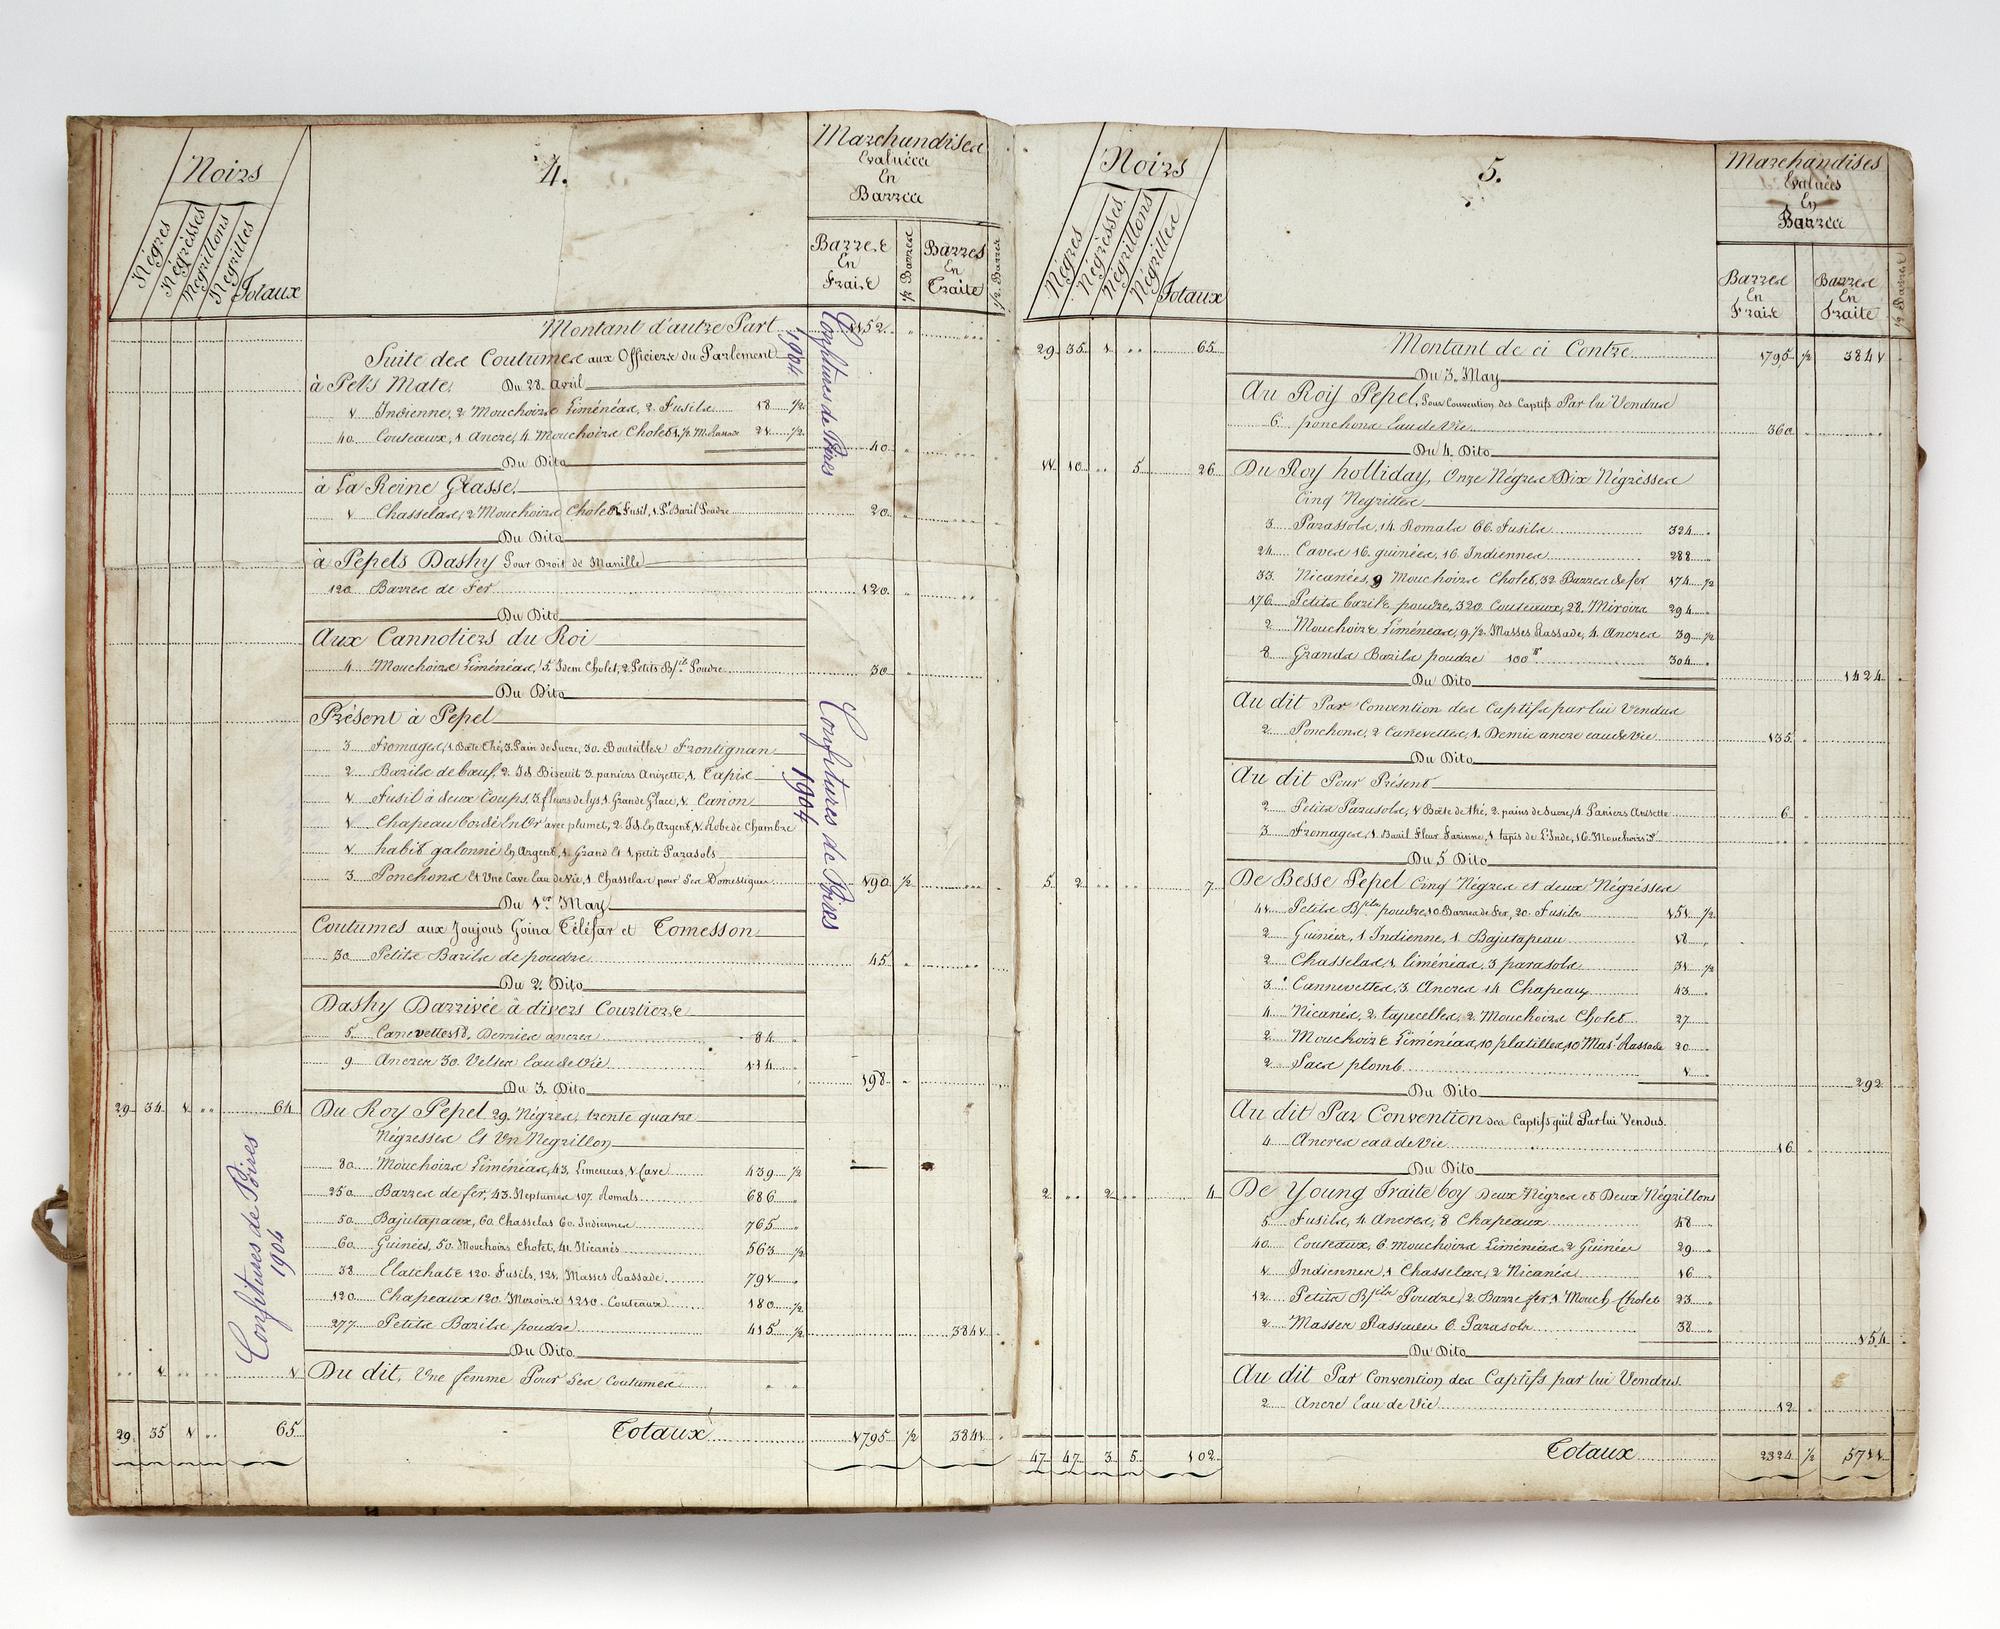 Noirs
4.
Marchandises
Evaluées
En
Barres
Négres
Négrèsses
Négrillons
Négrilles
Totaux
Barres
En
Frais
1/2 Barres
Barres
En
Traite
1/2 Barres
Montant d'autre Part 1152
Suite des Coutumes aux Officiers du Parlement
à Pets Mate, Du 28. Avril
1 Indienne, 2 Mouchoirs Liménéas, 2. Fusils 18 1/2
40 Couteaux, 1 Ancre, 4 Mouchoirs Cholet, 1/2 M. Rassade 21 1/2 40
Du Dito
à La Reine Grasse
1 Chasselas, 2 Mouchoirs Cholet, Fusil, 1 Pt Baril Poudre 20
Du Dito
à Pepels Dashy Pour Droit de Manille
120 Barres de Fer 120
Du Dito
Aux Cannotiers du Roi
4 Mouchoirs Liménéas, 5 Idem Cholet, 2 Petits Bils Poudre 30
Du Dito
Présent à Pepel
3 Fromages, 1 Boëte Thé, 3 Pain de Sucre, 30. Bouteilles Frontignan
2 Barils de bœuf, 2. Id. Biscuit 3. paniers Anizette, 1. Tapis
1 Fusil à deux Coups, 3 fleurs de lys, 1. Grande Glace, 1. Canon
1 Chapeau bordé En Or avec plumet, 2. Id. En Argent, 1. Robe de Chambre
1 habit galonné En Argent, 1. Grand Et 1. petit Parasols
3 Ponchons Et Une Cave Eau de Vie, 1. Chasselas pour Ses Domestiques 190 1/2
Du 1er May
Coutumes aux Joujous Goina Téléfar et Tomesson
30 Petits Barils de poudre 45
Du 2. Dito
Dashy Darrivée à divers Courtiers
5 Canevettes 18. Demies ancres 84
9 Ancres 30. Veltes Eau de Vie 114 198
Du 3. Dito
29 34 1 64 Du Roy Pepel 29. Négres, trente quatre
Négresses Et Un Negrillon
80 Mouchoirs Liménéas, 43. Limeneas, 1 Cave 439 1/2
250 Barres de fer, 43. Neptumes 107. Romals 686
50 Bajutapaux, 60. Chasselas 60. Indiennes 765
60 Guinées, 50. Mouchoirs Cholet, 41. Nicanés 563 1/2
38 Elatchats 120. Fusils, 121. Masses Rassade 791
120 Chapeaux 120. Miroirs 1210. Couteaux 180 1/2
277 Petits Barils poudre 415 1/2 3841
Du Dito
1 1 Du dit, Une femme Pour Ses Coutumes
29 35 1 65 Totaux 1795 1/2 3841
Confitures de Poires
1904
Confitures de Poires
1904
Confitures de Poires
1904
Noirs
5.
Marchandises
Evaluées
En
Barres
Négres
Négrèsses
Négrillons
Négrilles
Totaux
Barres
En
Frais
Barres
En
Traite
1/2 Barres
29 35 1 65 Montant de ci Contre 1795 1/2 3841
Du 3. May
Au Roy Pepel, Pour Convention des Captifs Par lui Vendus
6 ponchons Eau de Vie 360
Du 4. Dito
11 10 5 26 Du Roy holliday, Onze Négres Dix Négrèsses
Cinq Negrittes
3 Parassols, 14. Romals 66. Fusils 324
24 Caves 16. guinées, 16. Indiennes 288
33 Nicanées, 9 Mouchoirs Cholet, 32. Barres de fer 174 1/2
176 Petits barils poudre, 320 Couteaux, 28. Miroirs 294
2 Mouchoirs Liménéas, 9 1/2. Masses Rassade, 4. Ancres 39 1/2
8 Grands Barils poudre 100 lt 304 1424
Du Dito
Au dit Par Convention des Captifs par lui Vendus
2 Ponchons, 2 Canevettes, 1. Demie ancre eau de Vie 135
Du Dito
Au dit Pour Présent
2 Petits Parasols, 1 Boëte de thé, 2. pains de Sucre, 4. Paniers Anisette 6
3 Fromages, 1. Baril Fleur Farinne, 1 tapis de L'Inde, 16. Mouchoirs
Du 5 Dito
5 2 7 De Besse Pepel Cinq Négres et deux Négrèsses
41 Petits Bils poudre, 10. Barres de fer, 20. Fusils 151 1/2
2 Guinées, 1 Indienne, 1. Bajutapeau 18
2 Chasselas, 1. liménéas, 3 parasols 31 1/2
3 Cannevettes, 3. Ancres 14 Chapeaux 43
4 Nicanés, 2. tapecelles, 2. Mouchoirs Cholet 27
2 Mouchoirs Liménéas, 10 platilles, 10 Mas. Rassade 20
2 Sacs plomb 1 292
Du Dito
Au dit Par Convention des Captifs quil Par lui Vendus.
4 Ancres eau de Vie 16
Du Dito
2 2 4 De Young Traite boy Deux Négres et Deux Négrillons
5 Fusils, 4 Ancres, 8 Chapeaux 48
40 Couteaux, 6. mouchoirs Liménéas, 2 Guinées 29
1 Indiennes, 1 Chasselas, 2 Nicanés 16
12 Petits Bils Poudre, 2. Barre fer, 1. Mouch. Cholet 23
2 Masses Rassades 6. Parasols 38 154
Du Dito
Au dit Par Convention des Captifs par lui Vendus.
2 Ancre Eau de Vie 12
47 47 3 5 102 Totaux 2324 1/2 5711